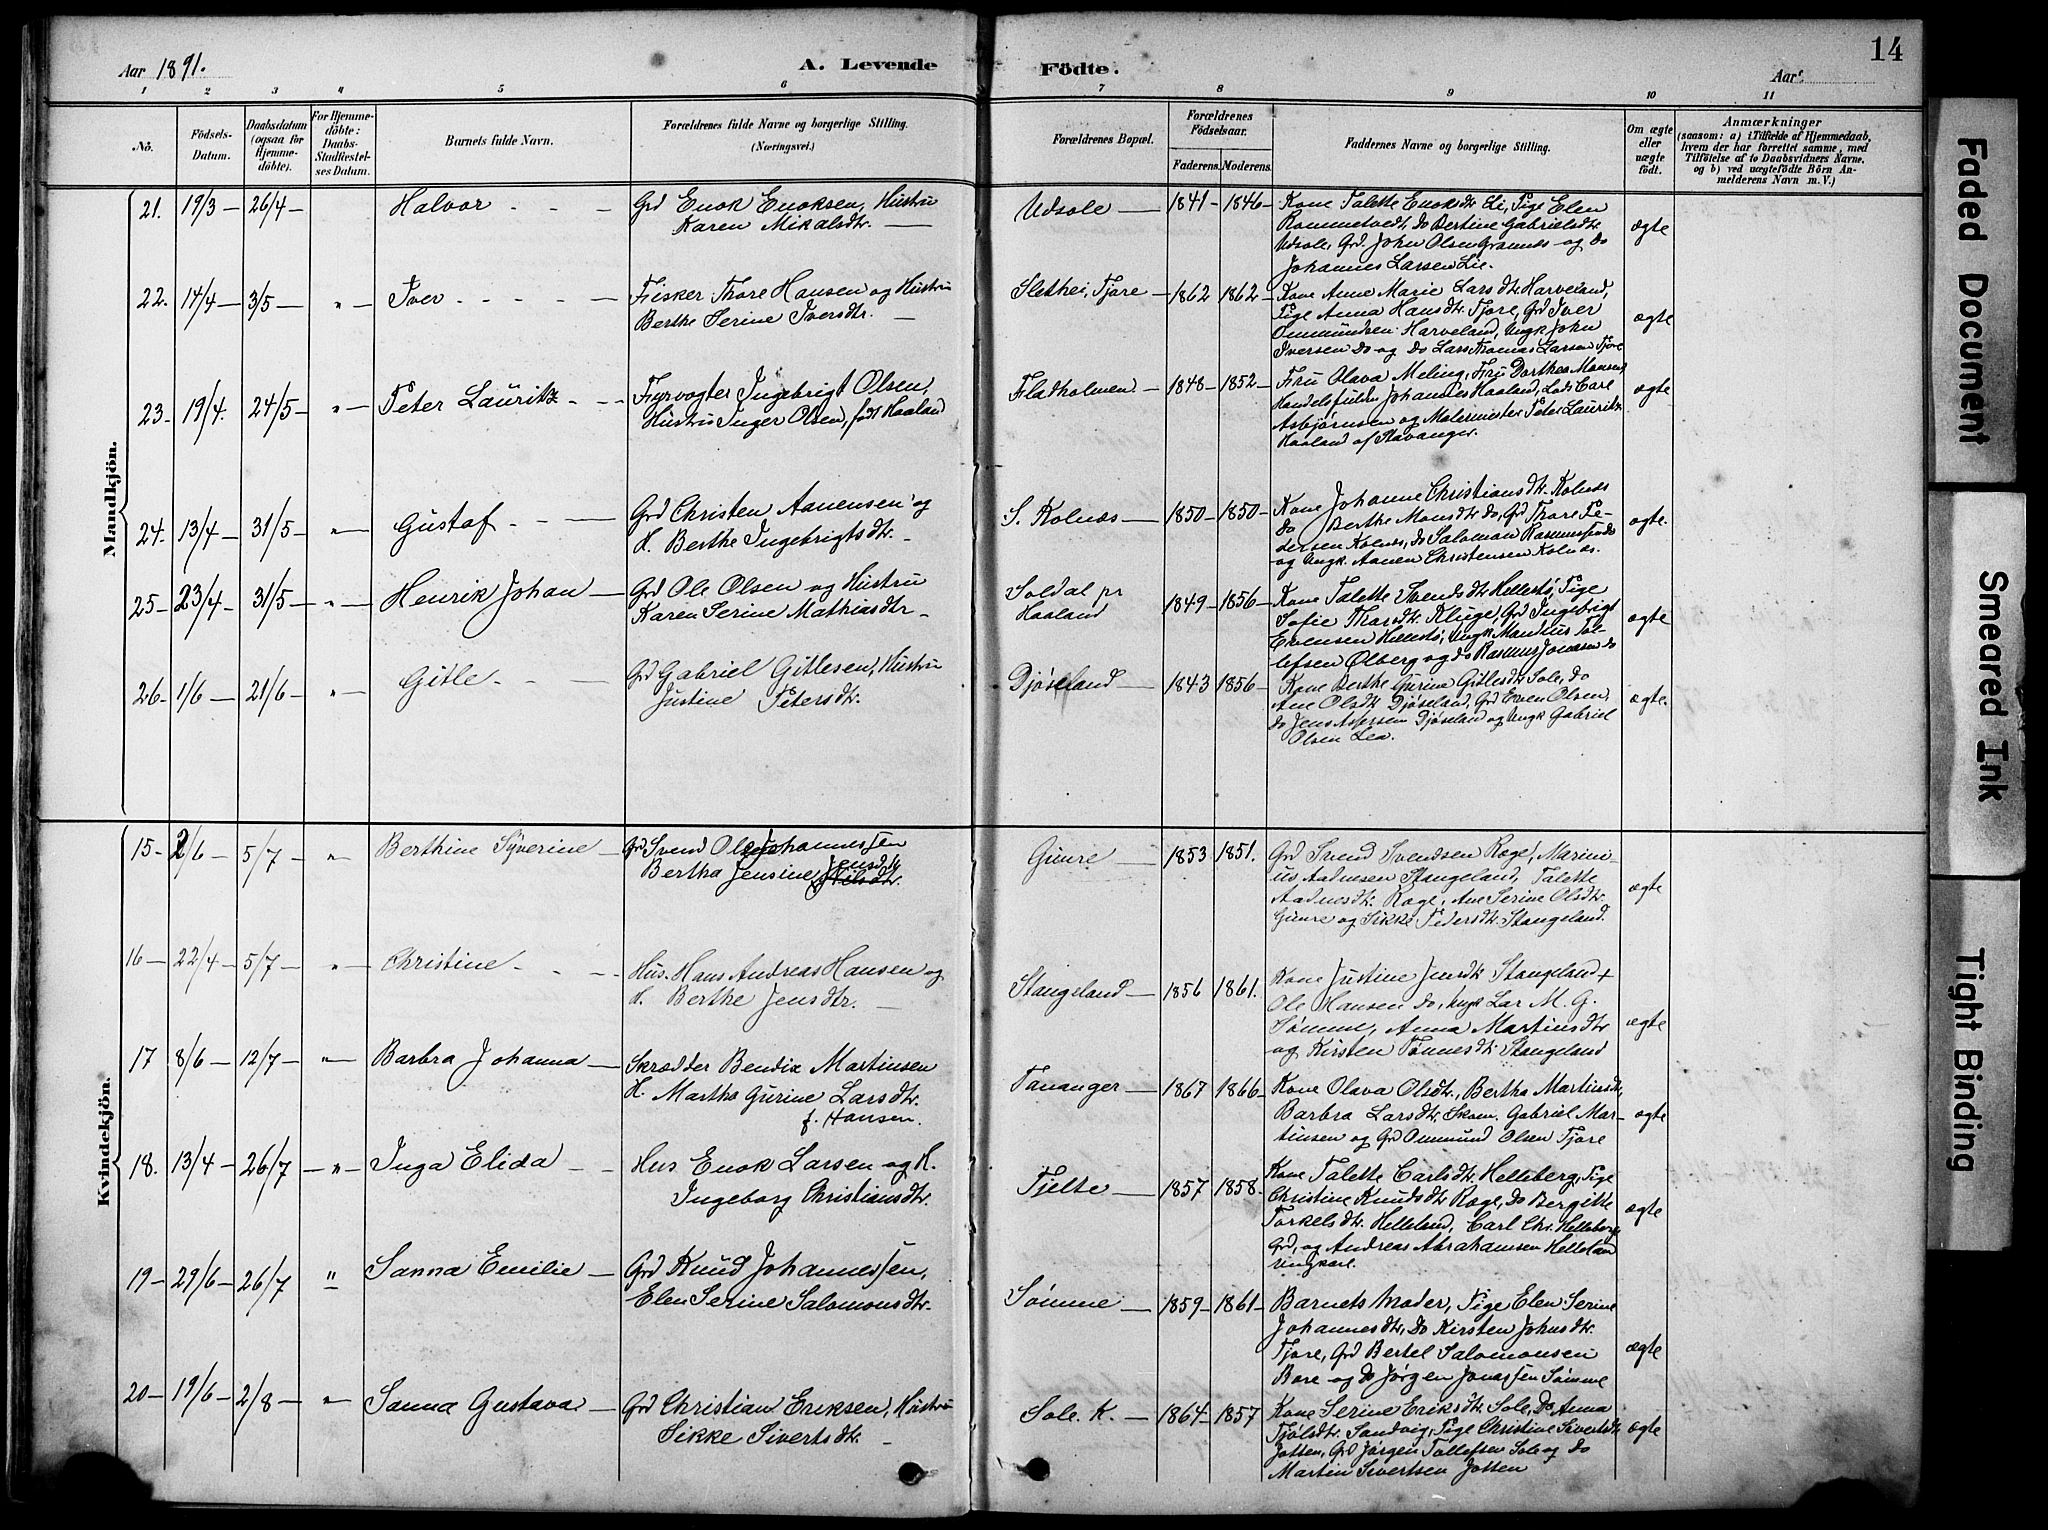 Aar 1891.
A. Levende
Födte.
Aar
14
1 2 3 4 5 6 7 8 9 10 11
No.
Födsels-Datum.
Daabsdatum (ogsaa for Hjemme-döbte).
For Hjemme-döbte: Daabs-Stadfæstel-ses Datum.
Barnets fulde Navn.
Forældrenes fulde Navne og borgerlige Stilling. (Næringsvei.)
Forældrenes Bopæl.
Forældrenes Födselsaar.
Faderens. Moderens.
Faddernes Navne og borgerlige Stilling.
Om ægte eller uægte födt.
Anmærkninger
(saasom: a) i Tilfælde af Hjemmedaab,
hvem der har forrettet samme, med
Tilföielse af to Daabsvidners Navne.
og b) ved uægtefödte Börn An-
melderens Navn m. V.)
Mandkjön.
21. 19/3 26/4 Halvor Grd Enok Enoksen, Hustru
Karen Mikalsdtr.
Udsole 1841 1846 Kone Talette Enoksdtr Li, Pige Elen
Rommetvedt, do Bertine Gabrielsdtr
Udsole, Grd. John Olsen Grannes og do
Johannes Larsen Lie.
ægte
22. 14/4 3/5 " Iver Fisker Thore Hansen og Hustru
Berthe Serine Iversdtr.
Slethei, Tjore 1862 1862 Kone Anne Marie Larsdtr Harveland,
Pige Anna Hansdtr. Tjore, Grd Iver
Ommundsen Harveland, Ungk John
Iversen do og do Lars Thomas Larsen Tjore
ægte
23. 19/4. 24/5 " Peter Lauritz Fyrvogter Ingebrigt Olsen,
Hustru Inger Olsen, født Haaland
Fladholmen 1848 1852 Fru Olava Meling, Fru Dorthea Monsen,
Handelsfuldm Johannes Haaland, Lods Carl
Asbjørnsen og Malermester Peter Lauritz
Haaland af Stavanger.
ægte
24. 13/4 31/5 " Gustaf Grd Christen Aanensen og
H. Berthe Ingebrigtsdtr.
S. Kolnæs 1850 1850 Kone Johanne Christiansdtr. Kolnæs
do Berthe Monsdtr do, Grd Thore Pe-
dersen Kolnæs, do Salomon Rasmussen do
og Ungk. Aanen Christensen Kolnæs.
ægte.
25 23/4 31/5 " Henrik Johan Grd Ole Olsen og Hustru
Karen Serine Mathiasdtr
Soldal pr
Haaland
1849 1856 Kone Talette Svendsdtr Hellestø, Pige
Sofie Thorsdtr. Kluge, Grd Ingebrigt
Hellestø, Ungk Mandius Tol-
lefsen Ølberg og do Rasmus Jonassen do
ægte
26 1/6 21/6 " Gitle Grd Gabriel Gitlesen, Hustru
Justine Petersdtr.
Djøseland 1843 1856 Kone Berthe Gurine Gitlesdtr Sole, do
Ane Olsdtr Djøseland, Grd Even Olsen,
do Jens Djøseland og Ungk Gabriel
Olsen Lea.
ægte.
Kvindekjön.
15 2/6 5/7 " Berthine Syverine Grd Svend Johannessen
Bertha Jensine Jensdtr
Gimre 1853 1851. Grd Svend Svendsen Rage, Marini-
us Aadnesen Stangeland, Talette
Aadnesdtr. Rage, Ane Serine Olsdtr.
Gimre og Sikke Pedersdtr. Stangeland.
ægte
16 22/4 5/7 " Christine Hus. Hans Andreas Hansen og
H. Berthe Jensdtr.
Stangeland 1856 1861. Kone Justine Jensdtr Stangeland +
Ole Hansen do, Ungk Lar M. G.
Sømme, Anna Martinsdtr
og Kirsten Tønnesdtr Stangeland
ægte
17 8/6 12/7 " Barbra Johanna Skrædder Bendix Martinsen
H. Martha Gurine Larsdtr.
f. Hansen.
Tananger 1867 1866 Kone Olava Olsdtr., Bertha Martinsdtr,
Barbra Larsdtr. Skom. Gabriel Mar-
tinsen og Grd Ommund Olsen Tjore
ægte
18. 13/4 26/7 " Inga Elida Hus Enok Larsen og H.
Ingeborg Christiansdtr.
Tjelte 1857 1858 Kone Talette Carlsdtr. Helleberg, Pige
Christine Knudsdtr Rage, do Bergitte
Torkelsdtr. Helleland, Carl Chr. Helleberg
Grd, og Andreas Abrahamsen Helleland
Ungkarl.
ægte
19 29/6 26/7 " Sanna Emilie Grd Knud Johannessen,
Elen Serine Salomonsdtr.
Sømme 1859 1861 Barnets Moder, Pige Elen Serine
Johannesdtr, Do Kirsten Johnsdtr.
Tjore, Grd Bertel Salomonsen
Bore og do Jørgen Jonassen Sømme
ægte
20 19/6 2/8 " Sanna Gustava Grd Christian Eriksen, Hustru
Sikke Sivertsdtr.
Sole. K. 1864 1857 Kone Serine Eriksdtr. Sole, Do Anna
Sandvig, Pige Christine Sivertsdtr
Jotten, Grd Jørgen Tollefsen Sole og do
Martin Sivertsen Jotten
ægte
Faded Document
Smeared Ink
Tight Binding